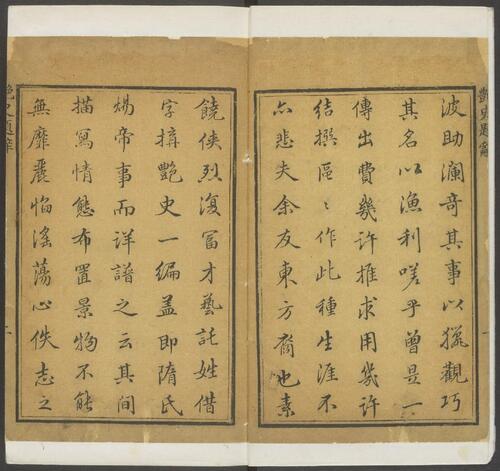 波助瀾奇其事以獵觀巧
其名以漁利嗟乎曾是一
傳出費幾許推求用幾許
結撰區〻作此種生涯不
亦悲夫余友東方裔也素
饒俠烈復冨才藝託姓借
字搆艶史一編盖即隋氏
煬帝事而詳譜之云其間
描寫情態布置景物不能
無靡麗慆滛蕩心佚志之